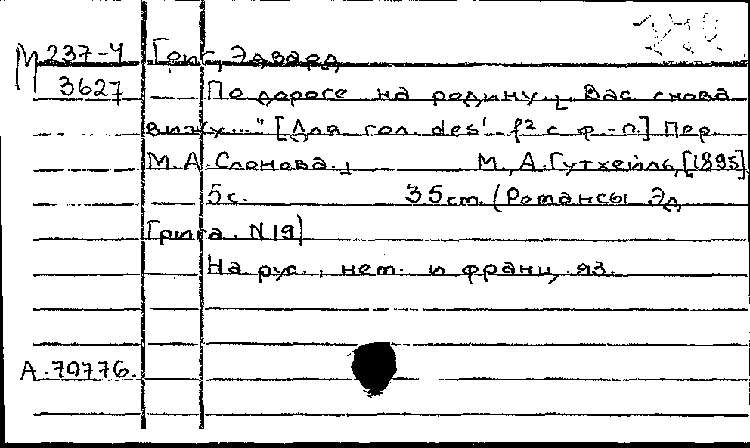 М 237-4 Григ, Эдвард
3627 По дороге на родину. „Вас снова
вижу..." [Для гол. des'-f² с ф.-п.] Пер.
М. А. Слонова.
М., А. Гутхейль, [1895]
5 с. 35 cm. (Романсы Эд.
Грига. N 19)
На рус., нем. и франц. яз.
А.70776.